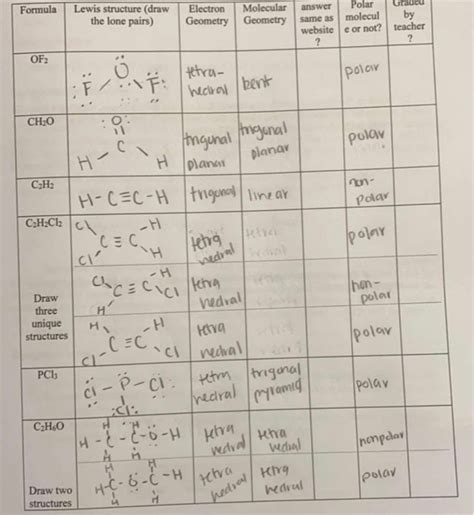 Formula Lewis structure (draw the lone pairs) Electron Geometry Molecular Geometry answer same as website ? Polar molecul e or not? Graded by teacher ?
OF₂ :F O F: tetra-hedral bent polar
CH₂O :O: H C H trigonal planar trigonal planar polar
C₂H₂ H-C≡C-H trigonal linear non-polar
C₂H₂Cl₂ Cl Cl C≡C H H tetra hedral tetra hedral polar
Draw three unique structures Cl H C≡C H Cl tetra hedral non-polar
H Cl C≡C H Cl tetra hedral polar
PCl₃ :Cl-P-Cl: :Cl: tetra hedral trigonal pyramid polar
C₂H₆O H H H-C-C-O-H H H tetra hedral tetra hedral nonpolar
Draw two structures H H H-C-O-C-H H H tetra hedral tetra hedral polar